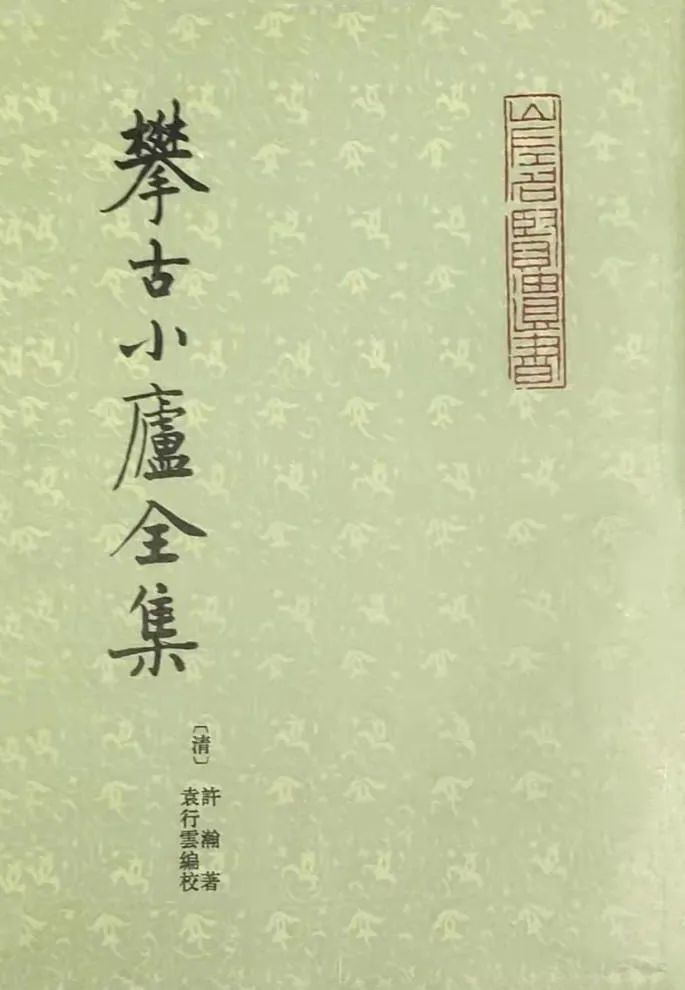 山左先賢遺書
攀古小廬全集
〔清〕
許瀚著
袁行雲編校